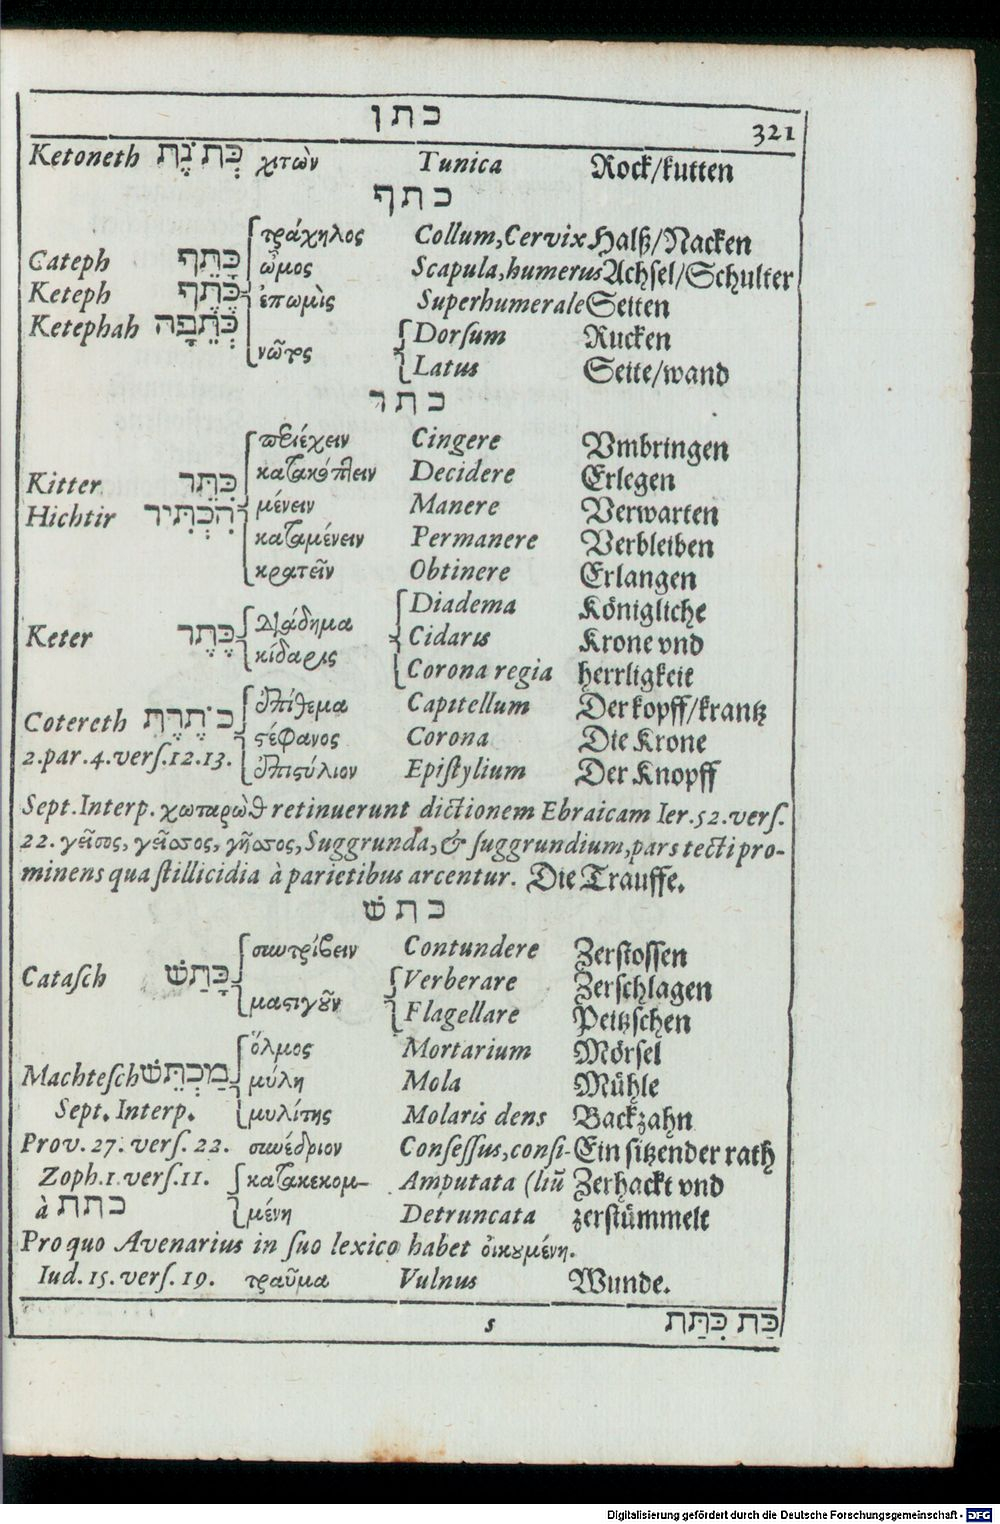 כתן
321
Ketoneth כְּתֹנֶת χιτὼν Tunica Rock/kutten
כתף
τράχηλος Collum, Cervix Halß/Nacken
Cateph כָּתֵף ὦμος Scapula, humerus Achsel/Schulter
Keteph כֶּתֶף ἐπωμὶς Superhumerale Seiten
Ketephah כְּתֵפָה Dorſum Rucken
νῶτος Latus Seite/wand
כתר
περιέχειν Cingere Vmbringen
κατακόπτειν Decidere Erlegen
Kitter כִּתֵּר μένειν Manere Verwarten
Hichtir הִכְתִּיר καταμένειν Permanere Verbleiben
κρατεῖν Obtinere Erlangen
διάδημα Diadema Königliche
Keter כֶּתֶר κίδαρις Cidaris Krone vnd
Corona regia herrligkeit
ἐπίθεμα Capitellum Der kopff/krantz
Cotereth כֹּתֶרֶת ϛέφανος Corona Die Krone
2. par. 4. verſ. 12. 13. ἐπιϛύλιον Epiſtylium Der Knopff
Sept. Interp. χωταρὼθ retinuerunt dictionem Ebraicam Ier. 52. verſ.
22. γεῖσος, γεῖσσος, γῆσσος, Suggrunda, & ſuggrundium, pars tecti pro-
minens qua ſtillicidia à parietibus arcentur. Die Trauffe.
כתש
συντρίβειν Contundere Zerstossen
Cataſch כָּתַשׁ Verberare Zerschlagen
μαϛιγοῦν Flagellare Peitzschen
ὅλμος Mortarium Mörsel
Machteſch מַכְתֵּשׁ μύλη Mola Mühle
Sept. Interp. μυλίτης Molaris dens Backzahn
Prov. 27. verſ. 22. συνέδριον Conſeſſus, conſi- Ein sitzender rath
Zoph. 1. verſ. 11. κατακεκομ- Amputata (liũ Zerhackt vnd
à כתת μένη Detruncata zerstümmelt
Pro quo Avenarius in ſuo lexico habet οἰκουμένη.
Iud. 15. verſ. 19. τραῦμα Vulnus Wunde.
s כַּת כִּתַּת
Digitalisierung gefördert durch die Deutsche Forschungsgemeinschaft - DFG